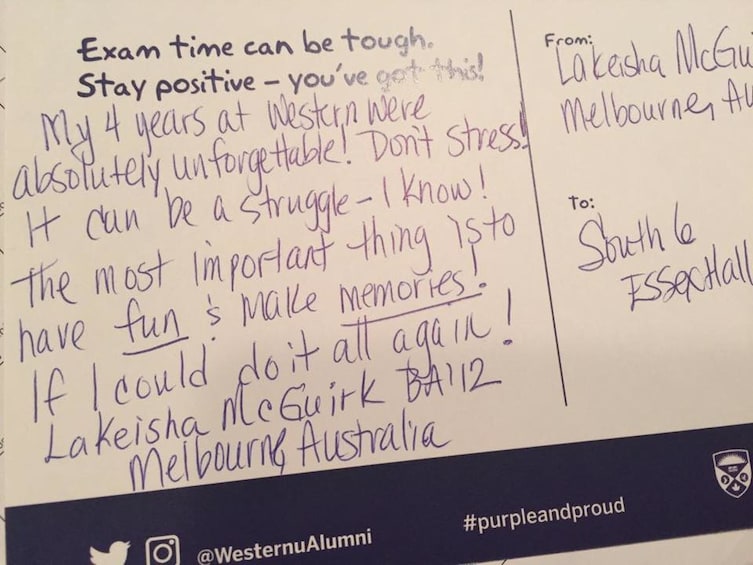 Exam time can be tough.
Stay positive – you've got this!
My 4 years at Western were
absolutely unforgettable! Don't stress!
It can be a struggle – I know!
The most important thing is to
have fun & make memories!
If I could do it all again!
Lakeisha McGuirk BA'12
Melbourne, Australia
From:
Lakeisha McGu
Melbourne, Au
To:
South 6
Essex Hall
@WesternuAlumni
#purpleandproud